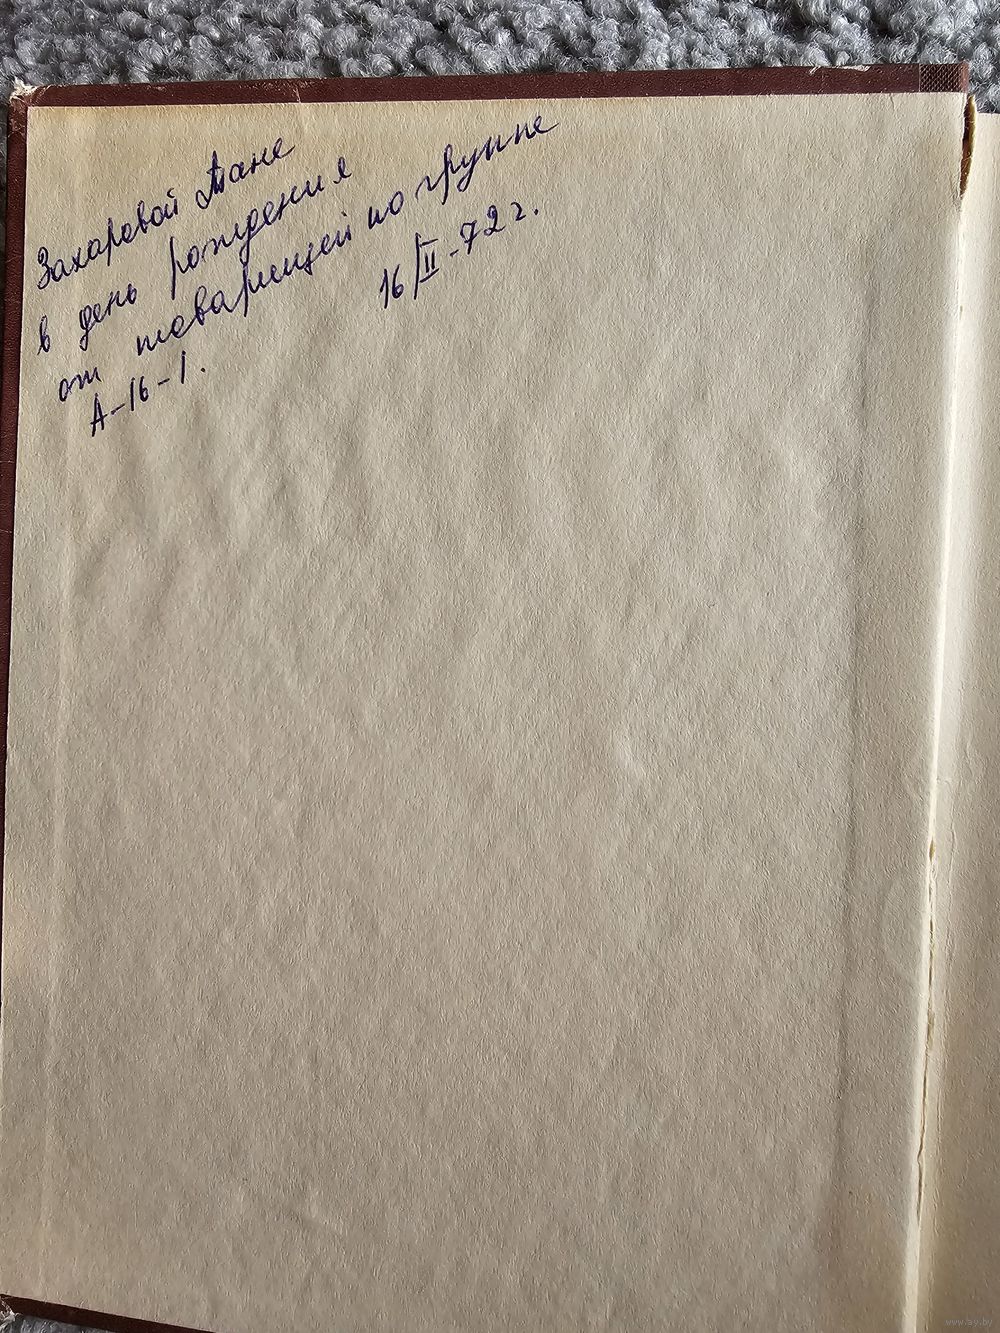 Захаровой Тане
в день рождения
от товарищей по группе
А-16-1.
16/II-72 г.
www.ay.by